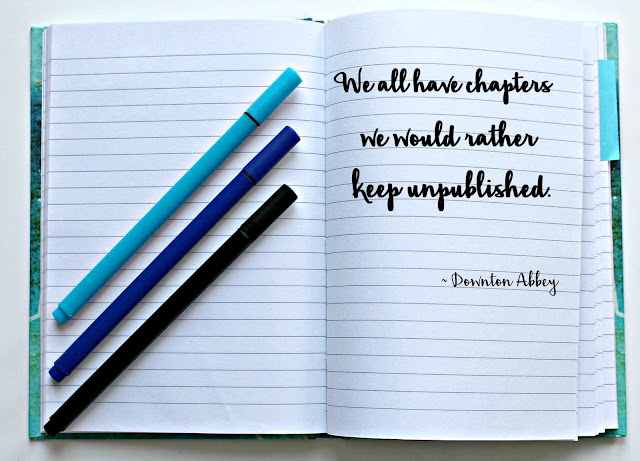 We all have chapters
we would rather
keep unpublished.
~ Downton Abbey